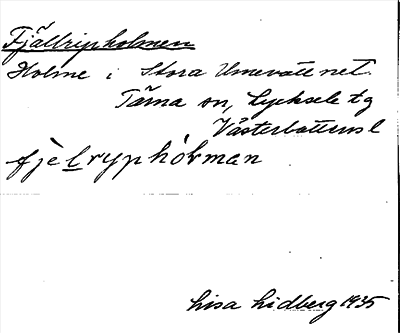 Fjällripholmen
Holme i Stora Umevattnet.
Tärna sn, Lycksele tg
Västerbottens l
fjèlryphólman
Lisa Lidberg 1935